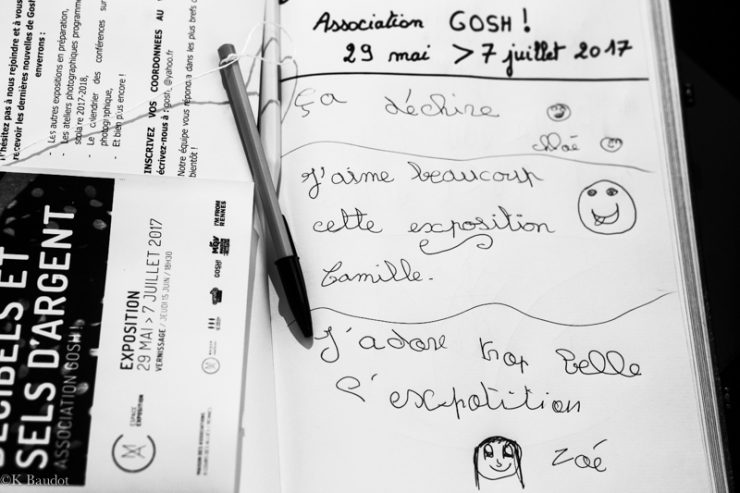 Association GOSH !
29 mai > 7 juillet 2017
Ça déchire
chloé
J'aime beaucoup
cette exposition
Camille.
J'adore trop belle
l'expotition
zoé
N'hésitez pas à nous rejoindre et à vous
recevoir les dernières nouvelles de Gosh
enverrons :
- Les autres expositions en préparation,
- Les ateliers photographiques programmé
scolaire 2017-2018,
- Le calendrier des conférences sur
photographique,
- Et bien plus encore !
INSCRIVEZ VOS COORDONNEES AU
écrivez-nous à : gosh, @yahoo.fr
Notre équipe vous répondra dans les plus brefs d
bientôt !
DÉCIBELS ET
SELS D'ARGENT
ASSOCIATION GOSH !
EXPOSITION
29 MAI > 7 JUILLET 2017
VERNISSAGE / JEUDI 15 JUIN / 18H30
ESPACE
EXPOSITION
MAISON DES ASSOCIATIONS
GOSH!
I'M FROM
RENNES
©K Baudot